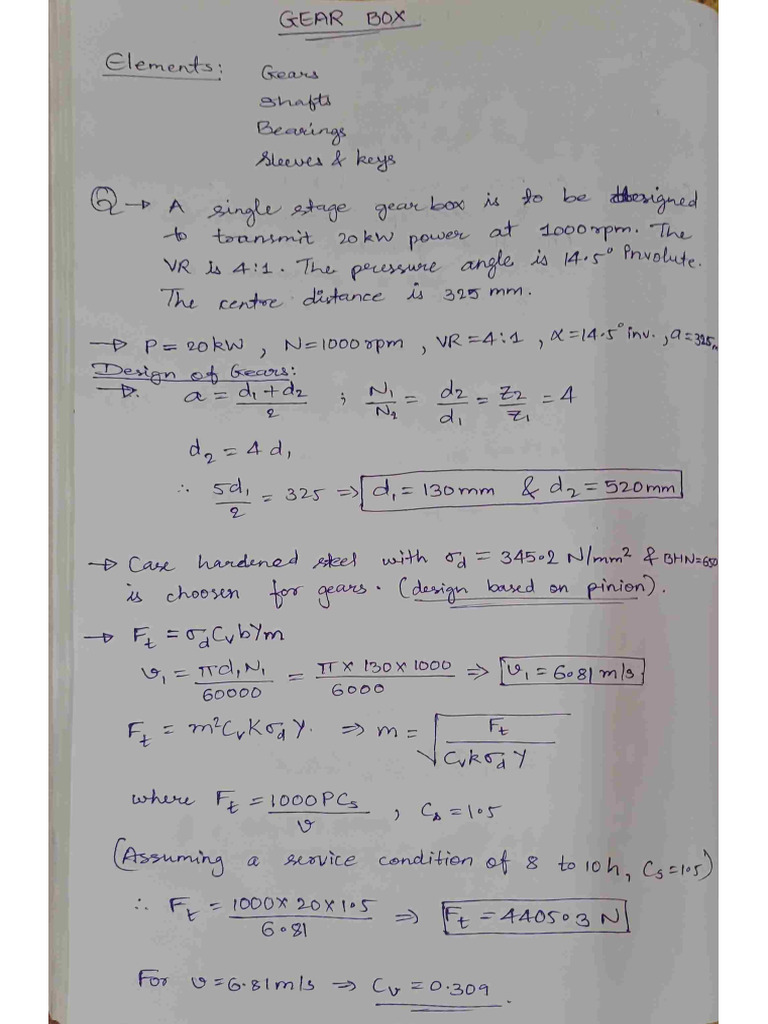 GEAR BOX
Elements: Gears
Shafts
Bearings
Sleeves & keys
Q → A single stage gear box is to be designed
to transmit 20 kW power at 1000 rpm. The
VR is 4:1. The pressure angle is 14.5° Involute.
The centre distance is 325 mm.
→ P = 20 kW , N = 1000 rpm , VR = 4:1 , α = 14.5° inv. , a = 325
Design of Gears:
→ a = (d₁ + d₂)/2 ; N₁/N₂ = d₂/d₁ = Z₂/Z₁ = 4
d₂ = 4 d₁
∴ 5d₁/2 = 325 ⇒ d₁ = 130 mm & d₂ = 520 mm
→ Case hardened steel with σd = 345.2 N/mm² & BHN = 650
is choosen for gears. (design based on pinion).
→ Ft = σd Cv b Y m
v₁ = πd₁N₁/60000 = π × 130 × 1000/6000 ⇒ v₁ = 6.81 m/s
Ft = m² Cv K σd Y. ⇒ m = √(Ft/(Cv k σd Y))
where Ft = 1000 P Cs/v , Cs = 1.5
(Assuming a service condition of 8 to 10 h, Cs = 1.5)
∴ Ft = 1000 × 20 × 1.5/6.81 ⇒ Ft = 4405.3 N
For v = 6.81 m/s ⇒ Cv = 0.309.